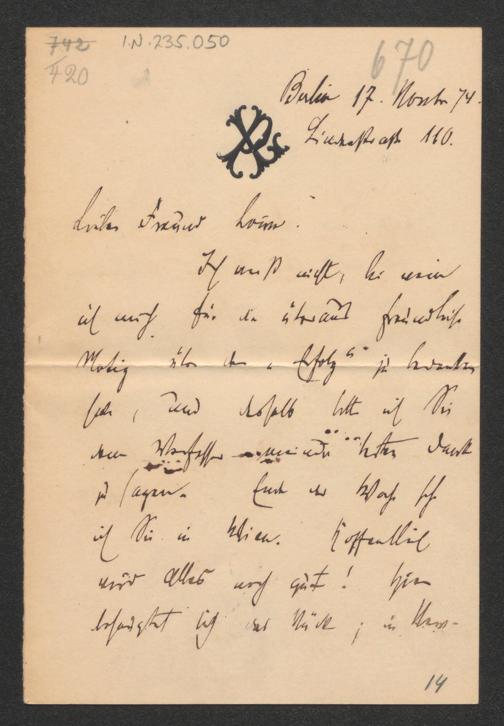 742 I.N.235.050
420 670
Berlin 17. Novbr 74.
Lindenstraße 110.
Lieber Freund
Ich weiß nicht, bei wem
ich mich für die überaus freundliche
Notiz über den „Erfolg“ zu bedanken
habe, und deshalb bitte ich Sie
dem Verfasser meinen besten Dank
zu sagen. Ende der Woche sehe
ich Sie in Wien. Hoffentlich
wird Alles noch gut! Hier
das Stück; in
14